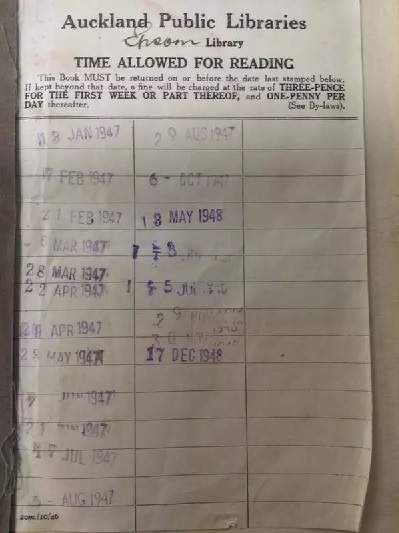 Auckland Public Libraries
Epsom Library
TIME ALLOWED FOR READING
This Book MUST be returned on or before the date last stamped below.
If kept beyond that date, a fine will be charged at the rate of THREE-PENCE
FOR THE FIRST WEEK OR PART THEREOF, and ONE-PENNY PER
DAY thereafter. (See By-laws).
JAN 1947
29 AUG 1947
FEB 1947
6 - OCT 1947
21 FEB 1947
13 MAY 1948
MAR 1947
28 MAR 1947
22 APR 1947
5 JUL
APR 1947
29
30 NOV
MAY 1947
17 DEC 1948
1947
21 1947
JUL 1947
5 - AUG 1947